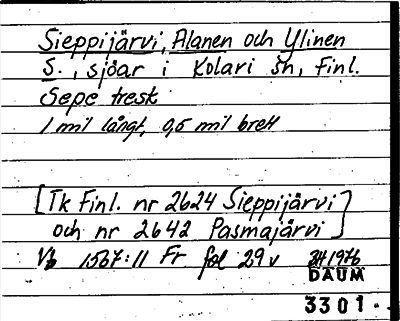 Sieppijärvi, Alanen och Ylinen
S., sjöar i Kolari sn, Finl.
Sepe tresk
1 mil långt, 0,5 mil brett
[Tk Finl. nr 2624 Sieppijärvi
och nr 2642 Pasmajärvi]
Vb 1567:11 Fr fol 29v 1976
DAUM
3301